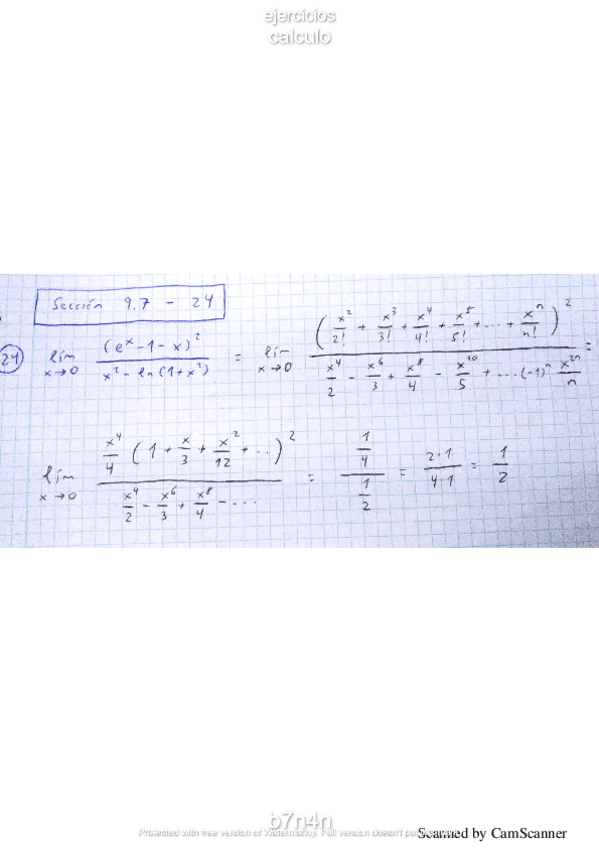 ejercicios
calculo
Sección 9.7 - 24
24 lím x→0 (e^x - 1 - x)^2 / (x^2 - ln(1 + x^2)) = lím x→0 (x^2/2! + x^3/3! + x^4/4! + x^5/5! + ... + x^n/n!)^2 / (x^4/2 - x^6/3 + x^8/4 - x^10/5 + ... (-1)^n x^2n/n) =
lím x→0 x^4/4 (1 + x/3 + x^2/12 + ...)^2 / (x^4/2 - x^6/3 + x^8/4 - ...) = (1/4)/(1/2) = 2·1/4·1 = 1/2
b7n4n
Protected with free version of Watermarkly. Full version doesn't put
Scanned by CamScanner